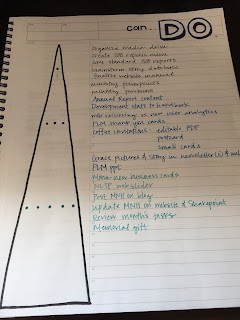 can DO
Organize media drive
Create SB express menu
standard SB exports
Brainstorm story database
Enable website manual
ministry powerpoints
ministry
Annual Report content
Development steps to handbook
recurring vs new user analytics
PLM thank you cards
coffee invitations: editable PDF
postcard
small cards
Grace pictures & story in newsletter(s) &
PLM ppt
Mana-new business cards
web slider
Post MNH on blog
update MNH on website & Sharepoint
Review month's tasks
Memorial gift